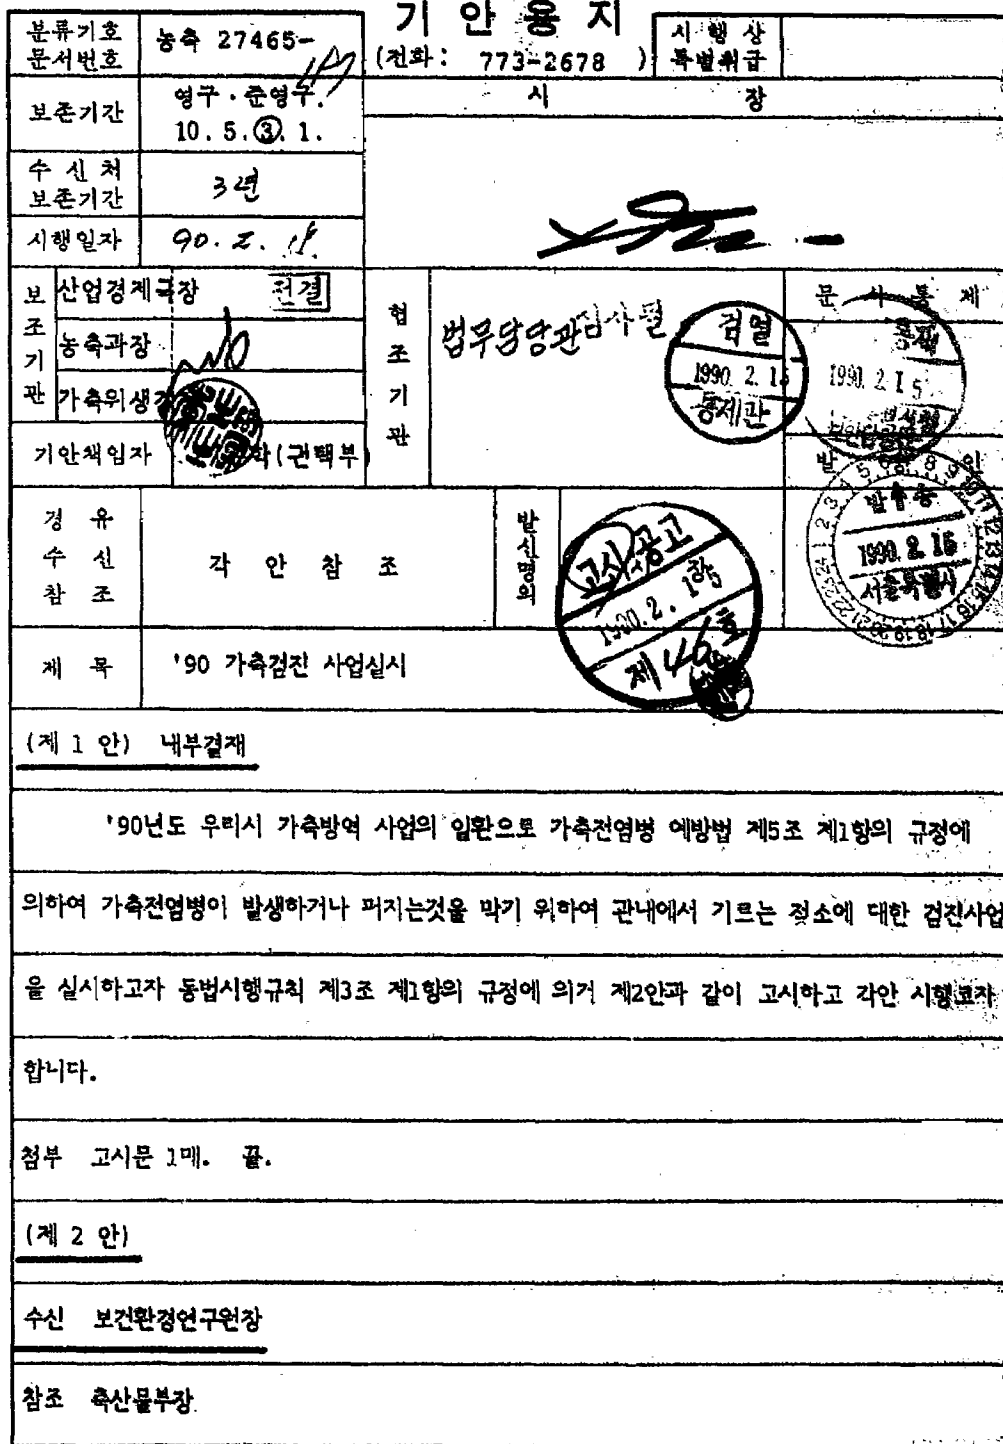 기 안 용 지
분류기호 문서번호 농축 27465-
(전화 : 773-2678 )
시 행 상 특별취급
보존기간 영구 · 준영구.
10. 5. ③. 1.
시 장
수 신 처 보존기간 3년
시행일자 90. 2.
보조기관
산업경제국장 전결
농축과장
가축위생
기안책임자 (권택부)
협조기관
법무담당관 심사필
검열
1990. 2. 15
통제관
문 서 통 제
1990. 2. 15
발 인
발송
1990. 2. 15
서울특별시
경 유
수 신 각 안 참 조
참 조
발신명의
고시 공고
1990. 2. 15
제 46 호
제 목 '90 가축검진 사업실시
(제 1 안) 내부결재
'90년도 우리시 가축방역 사업의 일환으로 가축전염병 예방법 제5조 제1항의 규정에
의하여 가축전염병이 발생하거나 퍼지는것을 막기 위하여 관내에서 기르는 젖소에 대한 검진사업
을 실시하고자 동법시행규칙 제3조 제1항의 규정에 의거 제2안과 같이 고시하고 각안 시행코자
합니다.
첨부 고시문 1매. 끝.
(제 2 안)
수신 보건환경연구원장
참조 축산물부장